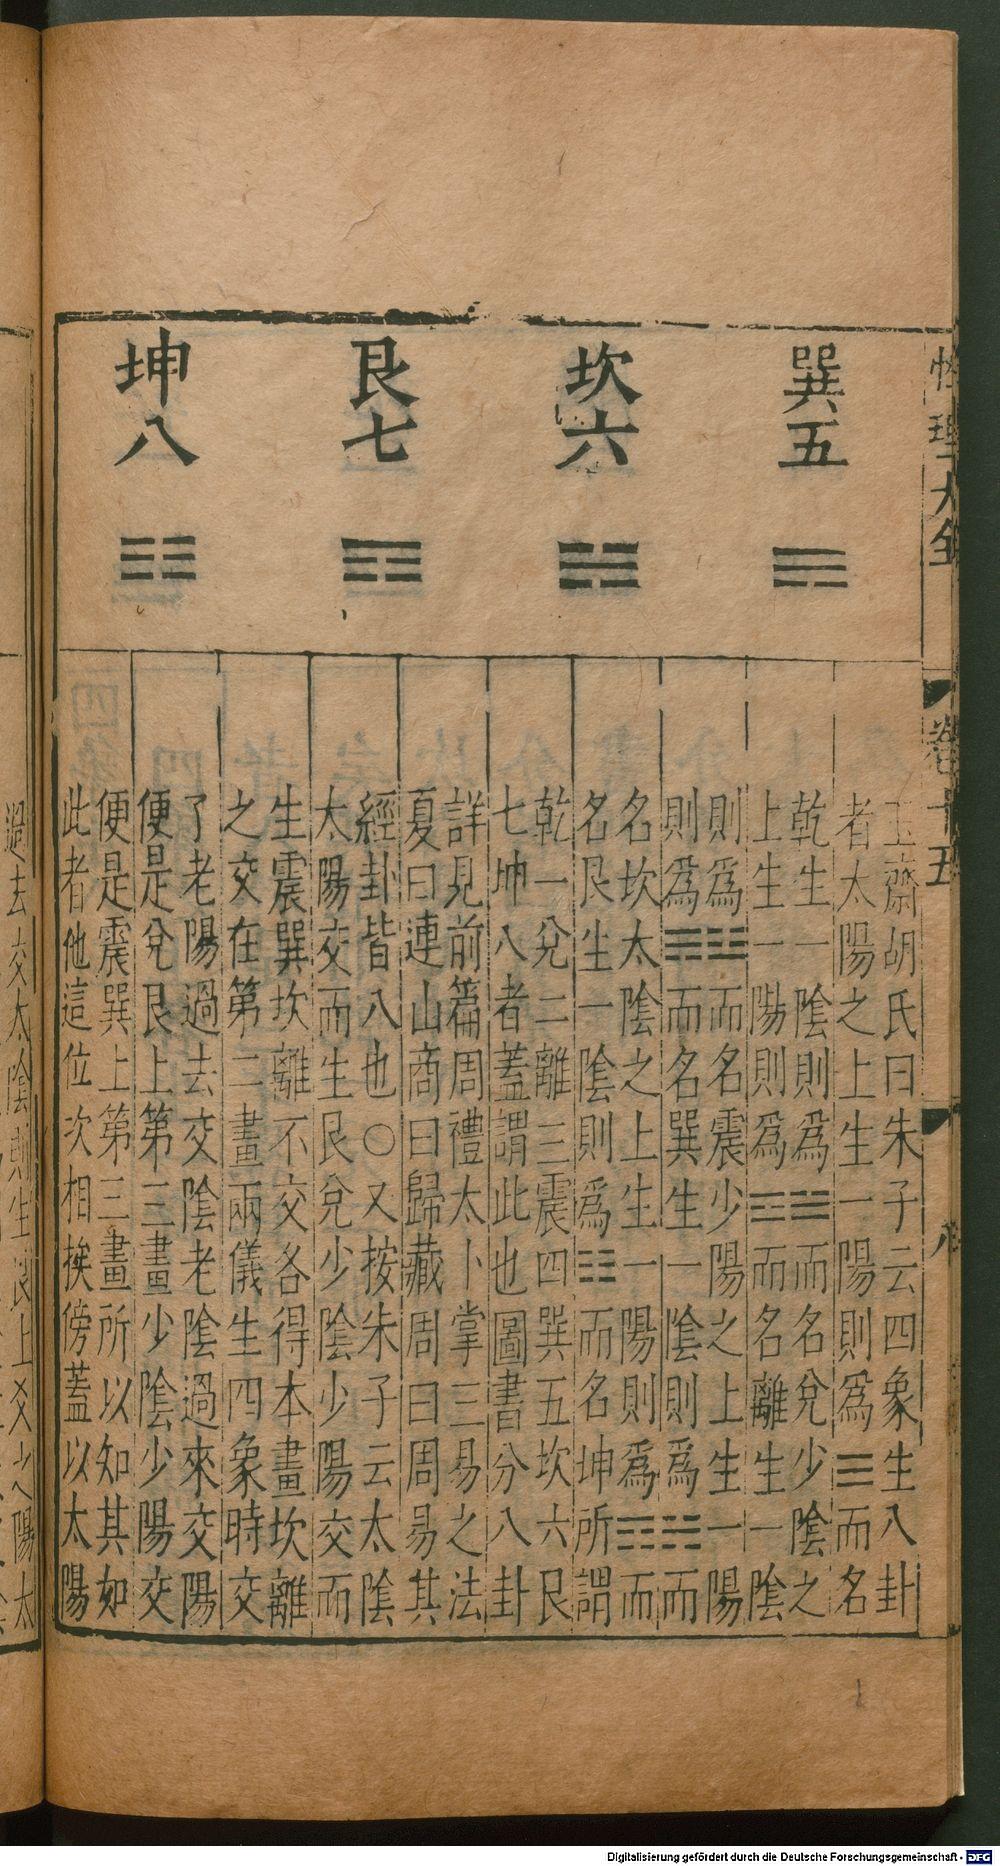 性理大全 卷十五 八
巽五 ☴
坎六 ☵
艮七 ☶
坤八 ☷
玉齋胡氏曰朱子云四象生八卦
者太陽之上生一陽則爲☰而名
乾生一陰則爲☱而名兌少陰之
上生一陽則爲☲而名離生一陰
則爲☳而名震少陽之上生一陽
則爲☴而名巽生一陰則爲☵而
名坎太陰之上生一陽則爲☶而
名艮生一陰則爲☷而名坤所謂
乾一兌二離三震四巽五坎六艮
七坤八者蓋謂此也圖書分八卦
詳見前篇周禮太卜掌三易之法
夏曰連山商曰歸藏周曰周易其
經卦皆八也○又按朱子云太陰
太陽交而生艮兌少陰少陽交而
生震巽坎離不交各得本畫坎離
之交在第二畫兩儀生四象時交
了老陽過去交陰老陰過來交陽
便是兌艮上第三畫少陰少陽交
便是震巽上第三畫所以知其如
此者他這位次相挨傍蓋以太陽
過去交太陰則生艮上爻少陽太
Digitalisierung gefördert durch die Deutsche Forschungsgemeinschaft - DFG